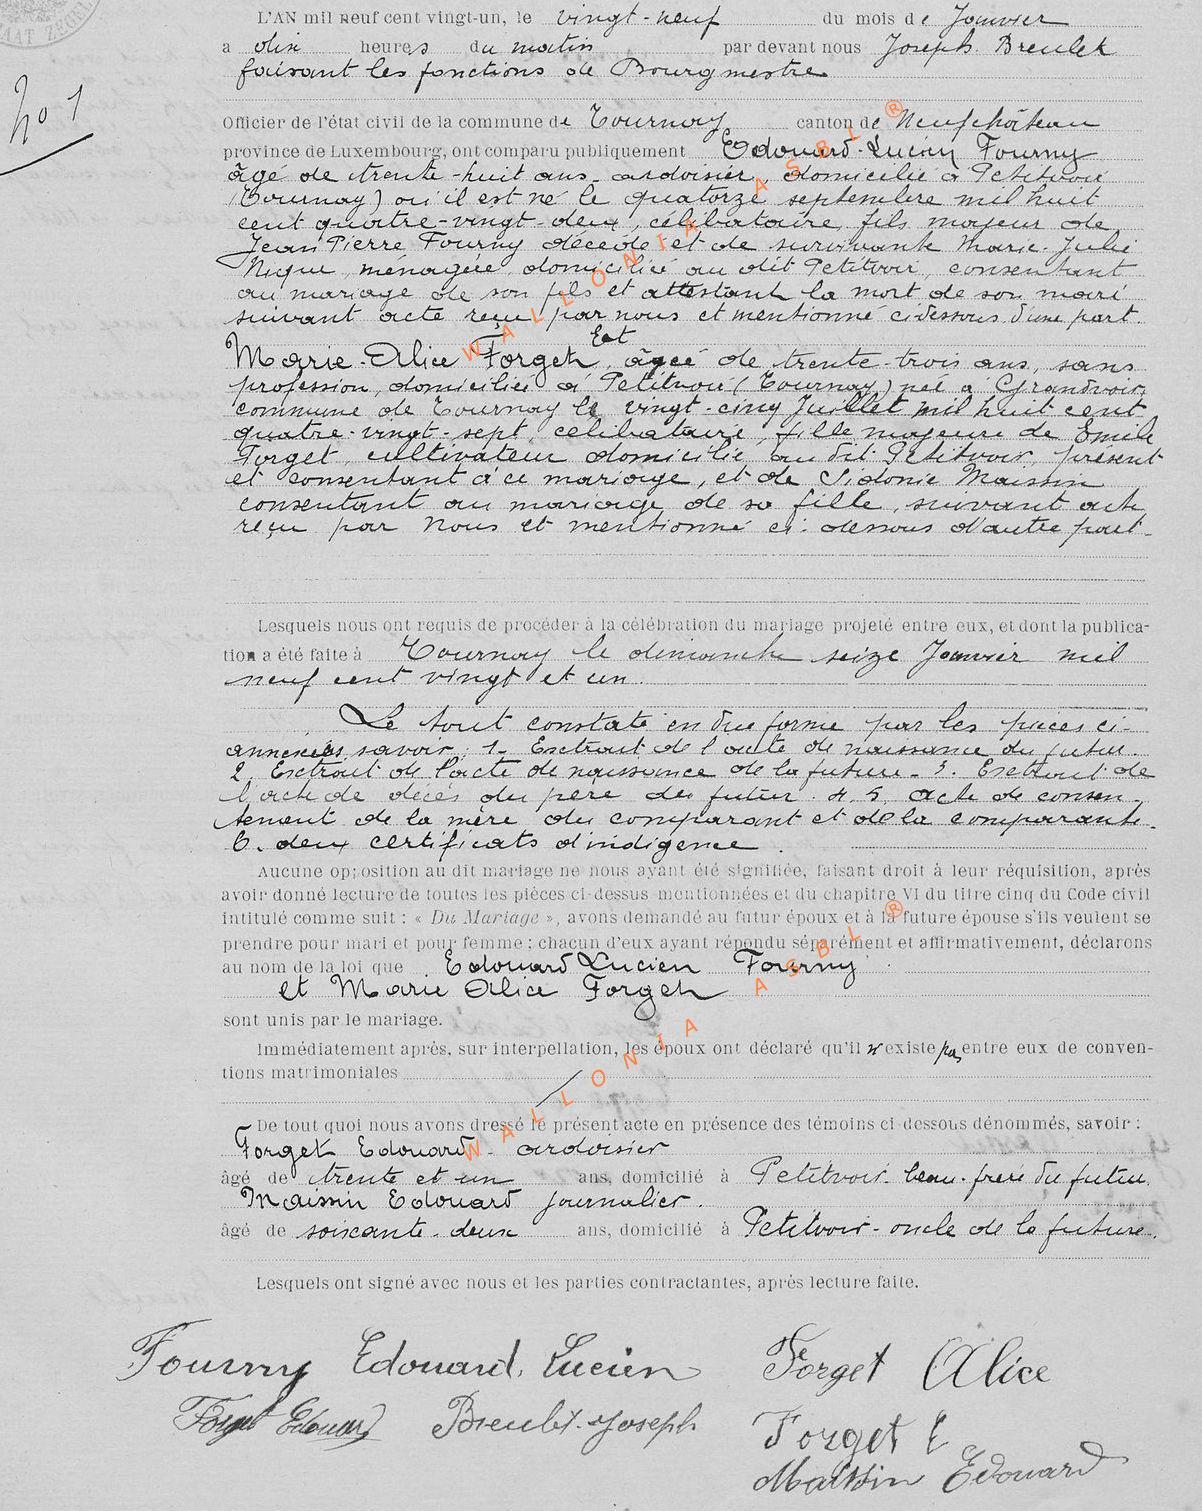 L'AN mil neuf cent vingt-un, le vingt-neuf du mois de Janvier
a dix heures du matin par devant nous Joseph Breulet
faisant les fonctions de Bourgmestre
No 1
Officier de l'état civil de la commune de Tournay canton de Neufchâteau
province de Luxembourg, ont comparu publiquement Edouard-Lucien Fourny
âgé de trente-huit ans, ardoisier, domicilié à Petitvoir
(Tournay) où il est né le quatorze septembre mil huit
cent quatre-vingt-deux, célibataire, fils majeur de
Jean Pierre Fourny décédé et de survivante Marie-Julie
Nique, ménagère, domiciliée au dit Petitvoir, consentant
au mariage de son fils et attestant la mort de son mari
suivant acte reçu par nous et mentionné ci-dessous d'une part.
Et
Marie-Alice Forget, âgée de trente-trois ans, sans
profession, domiciliée à Petitvoir (Tournay) née à Grandvoir,
commune de Tournay le vingt-cinq Juillet mil huit cent
quatre-vingt-sept, célibataire, fille majeure de Emile
Forget, cultivateur domicilié au dit Petitvoir, présent
et consentant à ce mariage, et de Sidonie Maissin
consentant au mariage de sa fille, suivant acte
reçu par nous et mentionné ci-dessous d'autre part.
Lesquels nous ont requis de procéder à la célébration du mariage projeté entre eux, et dont la publica-
tion a été faite à Tournay le dimanche seize Janvier mil
neuf cent vingt et un.
Le tout constaté en due forme par les pièces ci-
annexées, savoir : 1- Extrait de l'acte de naissance du futur.
2. Extrait de l'acte de naissance de la future - 3. Extrait de
l'acte de décès du père du futur. 4. 5. acte de consen-
tement de la mère du comparant et de la comparante.
6. deux certificats d'indigence.
Aucune opposition au dit mariage ne nous ayant été signifiée, faisant droit à leur réquisition, après
avoir donné lecture de toutes les pièces ci-dessus mentionnées et du chapitre VI du titre cinq du Code civil
intitulé comme suit : « Du Mariage », avons demandé au futur époux et à la future épouse s'ils veulent se
prendre pour mari et pour femme ; chacun d'eux ayant répondu séparément et affirmativement, déclarons
au nom de la loi que Edouard Lucien Fourny
et Marie Alice Forget
sont unis par le mariage.
Immédiatement après, sur interpellation, les époux ont déclaré qu'il n'existe pas entre eux de conven-
tions matrimoniales
De tout quoi nous avons dressé le présent acte en présence des témoins ci-dessous dénommés, savoir :
Forget Edouard - ardoisier
âgé de trente et un ans, domicilié à Petitvoir - beau-frère du futur
Maissin Edouard journalier.
âgé de soixante-deux ans, domicilié à Petitvoir - oncle de la future.
Lesquels ont signé avec nous et les parties contractantes, après lecture faite.
Fourny Edouard, Lucien Forget Alice
Forget Edouard Breulet Joseph Forget E
Maissin Edouard
WALLONIA ASBL ®
WALLONIA ASBL ®